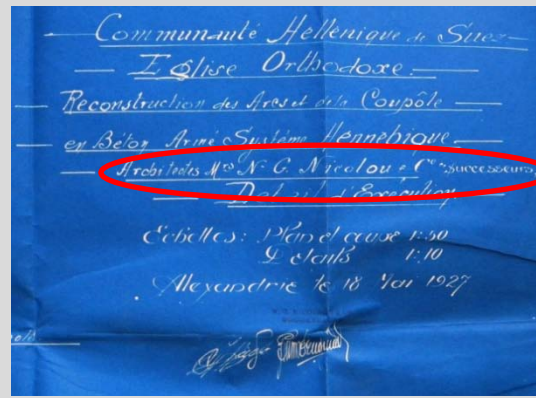 Communauté Hellénique de Suez
Eglise Orthodoxe.
Reconstruction des Arcs et de la Coupôle
en Béton Armé Système Hennebique
Architectes Mrs N. G. Nicolou et Cie Successeurs
Détail d'Execution
Echelles: Plan et coupe 1:50
Détails 1:10
Alexandrie le 18 Mai 1927